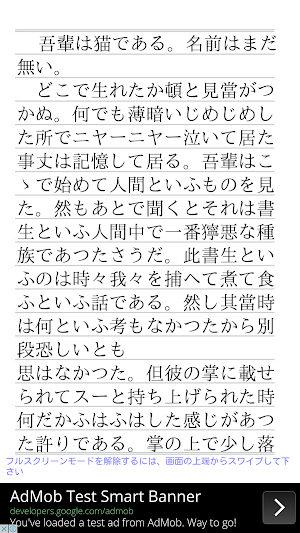 吾輩は猫である。名前はまだ
無い。
どこで生れたか頓と見當がつ
かぬ。何でも薄暗いじめじめし
た所でニヤーニヤー泣いて居た
事丈は記憶して居る。吾輩はこ
ゝで始めて人間といふものを見
た。然もあとで聞くとそれは書
生といふ人間中で一番獰悪な種
族であつたさうだ。此書生とい
ふのは時々我々を捕へて煮て食
ふといふ話である。然し其當時
は何といふ考もなかつたから別
段恐しいとも
思はなかつた。但彼の掌に載せ
られてスーと持ち上げられた時
何だかふはふはした感じがあつ
た許りである。掌の上で少し落
フルスクリーンモードを解除するには、画面の上端からスワイプして下
さい
AdMob Test Smart Banner
developers.google.com/admob
You've loaded a test ad from AdMob. Way to go!